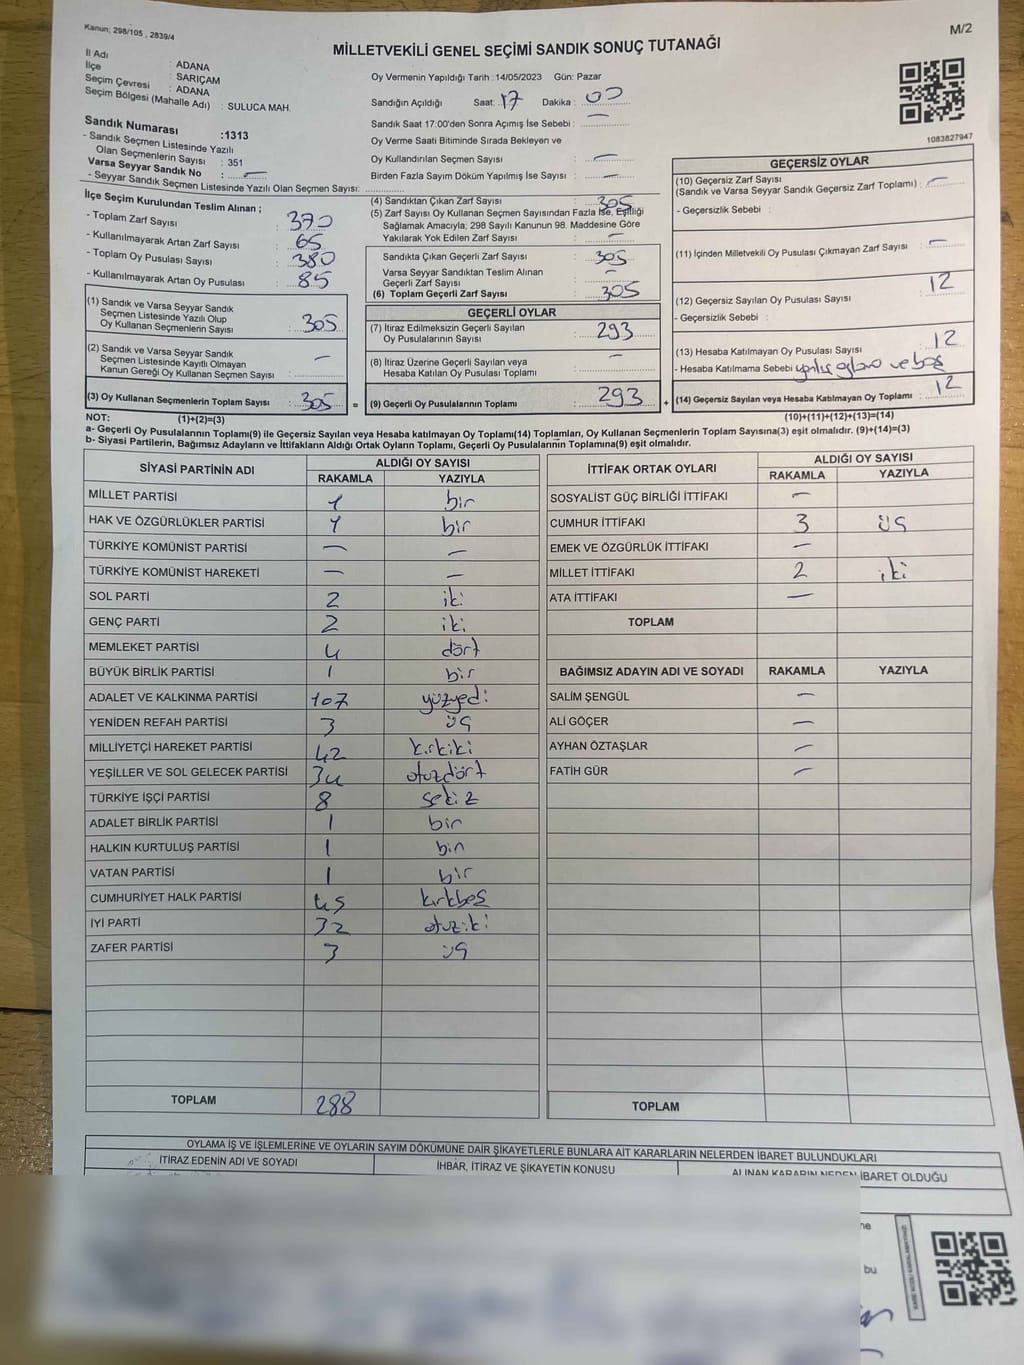 Kanun; 298/105 , 2839/4
M/2
MİLLETVEKİLİ GENEL SEÇİMİ SANDIK SONUÇ TUTANAĞI
İl Adı : ADANA
İlçe : SARIÇAM
Seçim Çevresi : ADANA
Seçim Bölgesi (Mahalle Adı) : SULUCA MAH.
Sandık Numarası :1313
- Sandık Seçmen Listesinde Yazılı
Olan Seçmenlerin Sayısı : 351
Varsa Seyyar Sandık No : —
- Seyyar Sandık Seçmen Listesinde Yazılı Olan Seçmen Sayısı:
Oy Vermenin Yapıldığı Tarih :14/05/2023 Gün: Pazar
Sandığın Açıldığı Saat: 17 Dakika : 00
Sandık Saat 17:00'den Sonra Açımış İse Sebebi : —
Oy Verme Saati Bitiminde Sırada Bekleyen ve
Oy Kullandırılan Seçmen Sayısı : —
Birden Fazla Sayım Döküm Yapılmış İse Sayısı : —
1083827947
İlçe Seçim Kurulundan Teslim Alınan ;
- Toplam Zarf Sayısı : 370
- Kullanılmayarak Artan Zarf Sayısı : 65
- Toplam Oy Pusulası Sayısı : 380
- Kullanılmayarak Artan Oy Pusulası : 85
(1) Sandık ve Varsa Seyyar Sandık
Seçmen Listesinde Yazılı Olup
Oy Kullanan Seçmenlerin Sayısı : 305
(2) Sandık ve Varsa Seyyar Sandık
Seçmen Listesinde Kayıtlı Olmayan
Kanun Gereği Oy Kullanan Seçmen Sayısı : —
(3) Oy Kullanan Seçmenlerin Toplam Sayısı : 305 =
(4) Sandıktan Çıkan Zarf Sayısı : 305
(5) Zarf Sayısı Oy Kullanan Seçmen Sayısından Fazla İse, Eşitliği
Sağlamak Amacıyla; 298 Sayılı Kanunun 98. Maddesine Göre
Yakılarak Yok Edilen Zarf Sayısı : —
Sandıkta Çıkan Geçerli Zarf Sayısı : 305
Varsa Seyyar Sandıktan Teslim Alınan
Geçerli Zarf Sayısı : —
(6) Toplam Geçerli Zarf Sayısı : 305
GEÇERLİ OYLAR
(7) İtiraz Edilmeksizin Geçerli Sayılan
Oy Pusulalarının Sayısı : 293
(8) İtiraz Üzerine Geçerli Sayılan veya
Hesaba Katılan Oy Pusulası Toplamı : —
(9) Geçerli Oy Pusulalarının Toplamı : 293 +
GEÇERSİZ OYLAR
(10) Geçersiz Zarf Sayısı
(Sandık ve Varsa Seyyar Sandık Geçersiz Zarf Toplamı) : —
- Geçersizlik Sebebi :
(11) İçinden Milletvekili Oy Pusulası Çıkmayan Zarf Sayısı : —
(12) Geçersiz Sayılan Oy Pusulası Sayısı : 12
- Geçersizlik Sebebi :
(13) Hesaba Katılmayan Oy Pusulası Sayısı : 12
- Hesaba Katılmama Sebebi yanlış ve boş
(14) Geçersiz Sayılan veya Hesaba Katılmayan Oy Toplamı : 12
NOT: (1)+(2)=(3)
(10)+(11)+(12)+(13)=(14)
a- Geçerli Oy Pusulalarının Toplamı(9) ile Geçersiz Sayılan veya Hesaba katılmayan Oy Toplamı(14) Toplamları, Oy Kullanan Seçmenlerin Toplam Sayısına(3) eşit olmalıdır. (9)+(14)=(3)
b- Siyasi Partilerin, Bağımsız Adayların ve İttifakların Aldığı Ortak Oyların Toplamı, Geçerli Oy Pusulalarının Toplamına(9) eşit olmalıdır.
SİYASİ PARTİNİN ADI ALDIĞI OY SAYISI
RAKAMLA YAZIYLA
MİLLET PARTİSİ 1 bir
HAK VE ÖZGÜRLÜKLER PARTİSİ 1 bir
TÜRKİYE KOMÜNİST PARTİSİ — —
TÜRKİYE KOMÜNİST HAREKETİ — —
SOL PARTİ 2 iki
GENÇ PARTİ 2 iki
MEMLEKET PARTİSİ 4 dört
BÜYÜK BİRLİK PARTİSİ 1 bir
ADALET VE KALKINMA PARTİSİ 107 yüzyedi
YENİDEN REFAH PARTİSİ 3 üç
MİLLİYETÇİ HAREKET PARTİSİ 42 kırkiki
YEŞİLLER VE SOL GELECEK PARTİSİ 34 otuzdört
TÜRKİYE İŞÇİ PARTİSİ 8 sekiz
ADALET BİRLİK PARTİSİ 1 bir
HALKIN KURTULUŞ PARTİSİ 1 bir
VATAN PARTİSİ 1 bir
CUMHURİYET HALK PARTİSİ 45 kırkbeş
İYİ PARTİ 32 otuziki
ZAFER PARTİSİ 3 üç
TOPLAM 288
İTTİFAK ORTAK OYLARI ALDIĞI OY SAYISI
RAKAMLA YAZIYLA
SOSYALİST GÜÇ BİRLİĞİ İTTİFAKI —
CUMHUR İTTİFAKI 3 üç
EMEK VE ÖZGÜRLÜK İTTİFAKI —
MİLLET İTTİFAKI 2 iki
ATA İTTİFAKI —
TOPLAM
BAĞIMSIZ ADAYIN ADI VE SOYADI RAKAMLA YAZIYLA
SALİM ŞENGÜL —
ALİ GÖÇER —
AYHAN ÖZTAŞLAR —
FATİH GÜR —
TOPLAM
OYLAMA İŞ VE İŞLEMLERİNE VE OYLARIN SAYIM DÖKÜMÜNE DAİR ŞİKAYETLERLE BUNLARA AİT KARARLARIN NELERDEN İBARET BULUNDUKLARI
İTİRAZ EDENİN ADI VE SOYADI İHBAR, İTİRAZ VE ŞİKAYETİN KONUSU ALINAN KARARIN NEDEN İBARET OLDUĞU
ne
bu